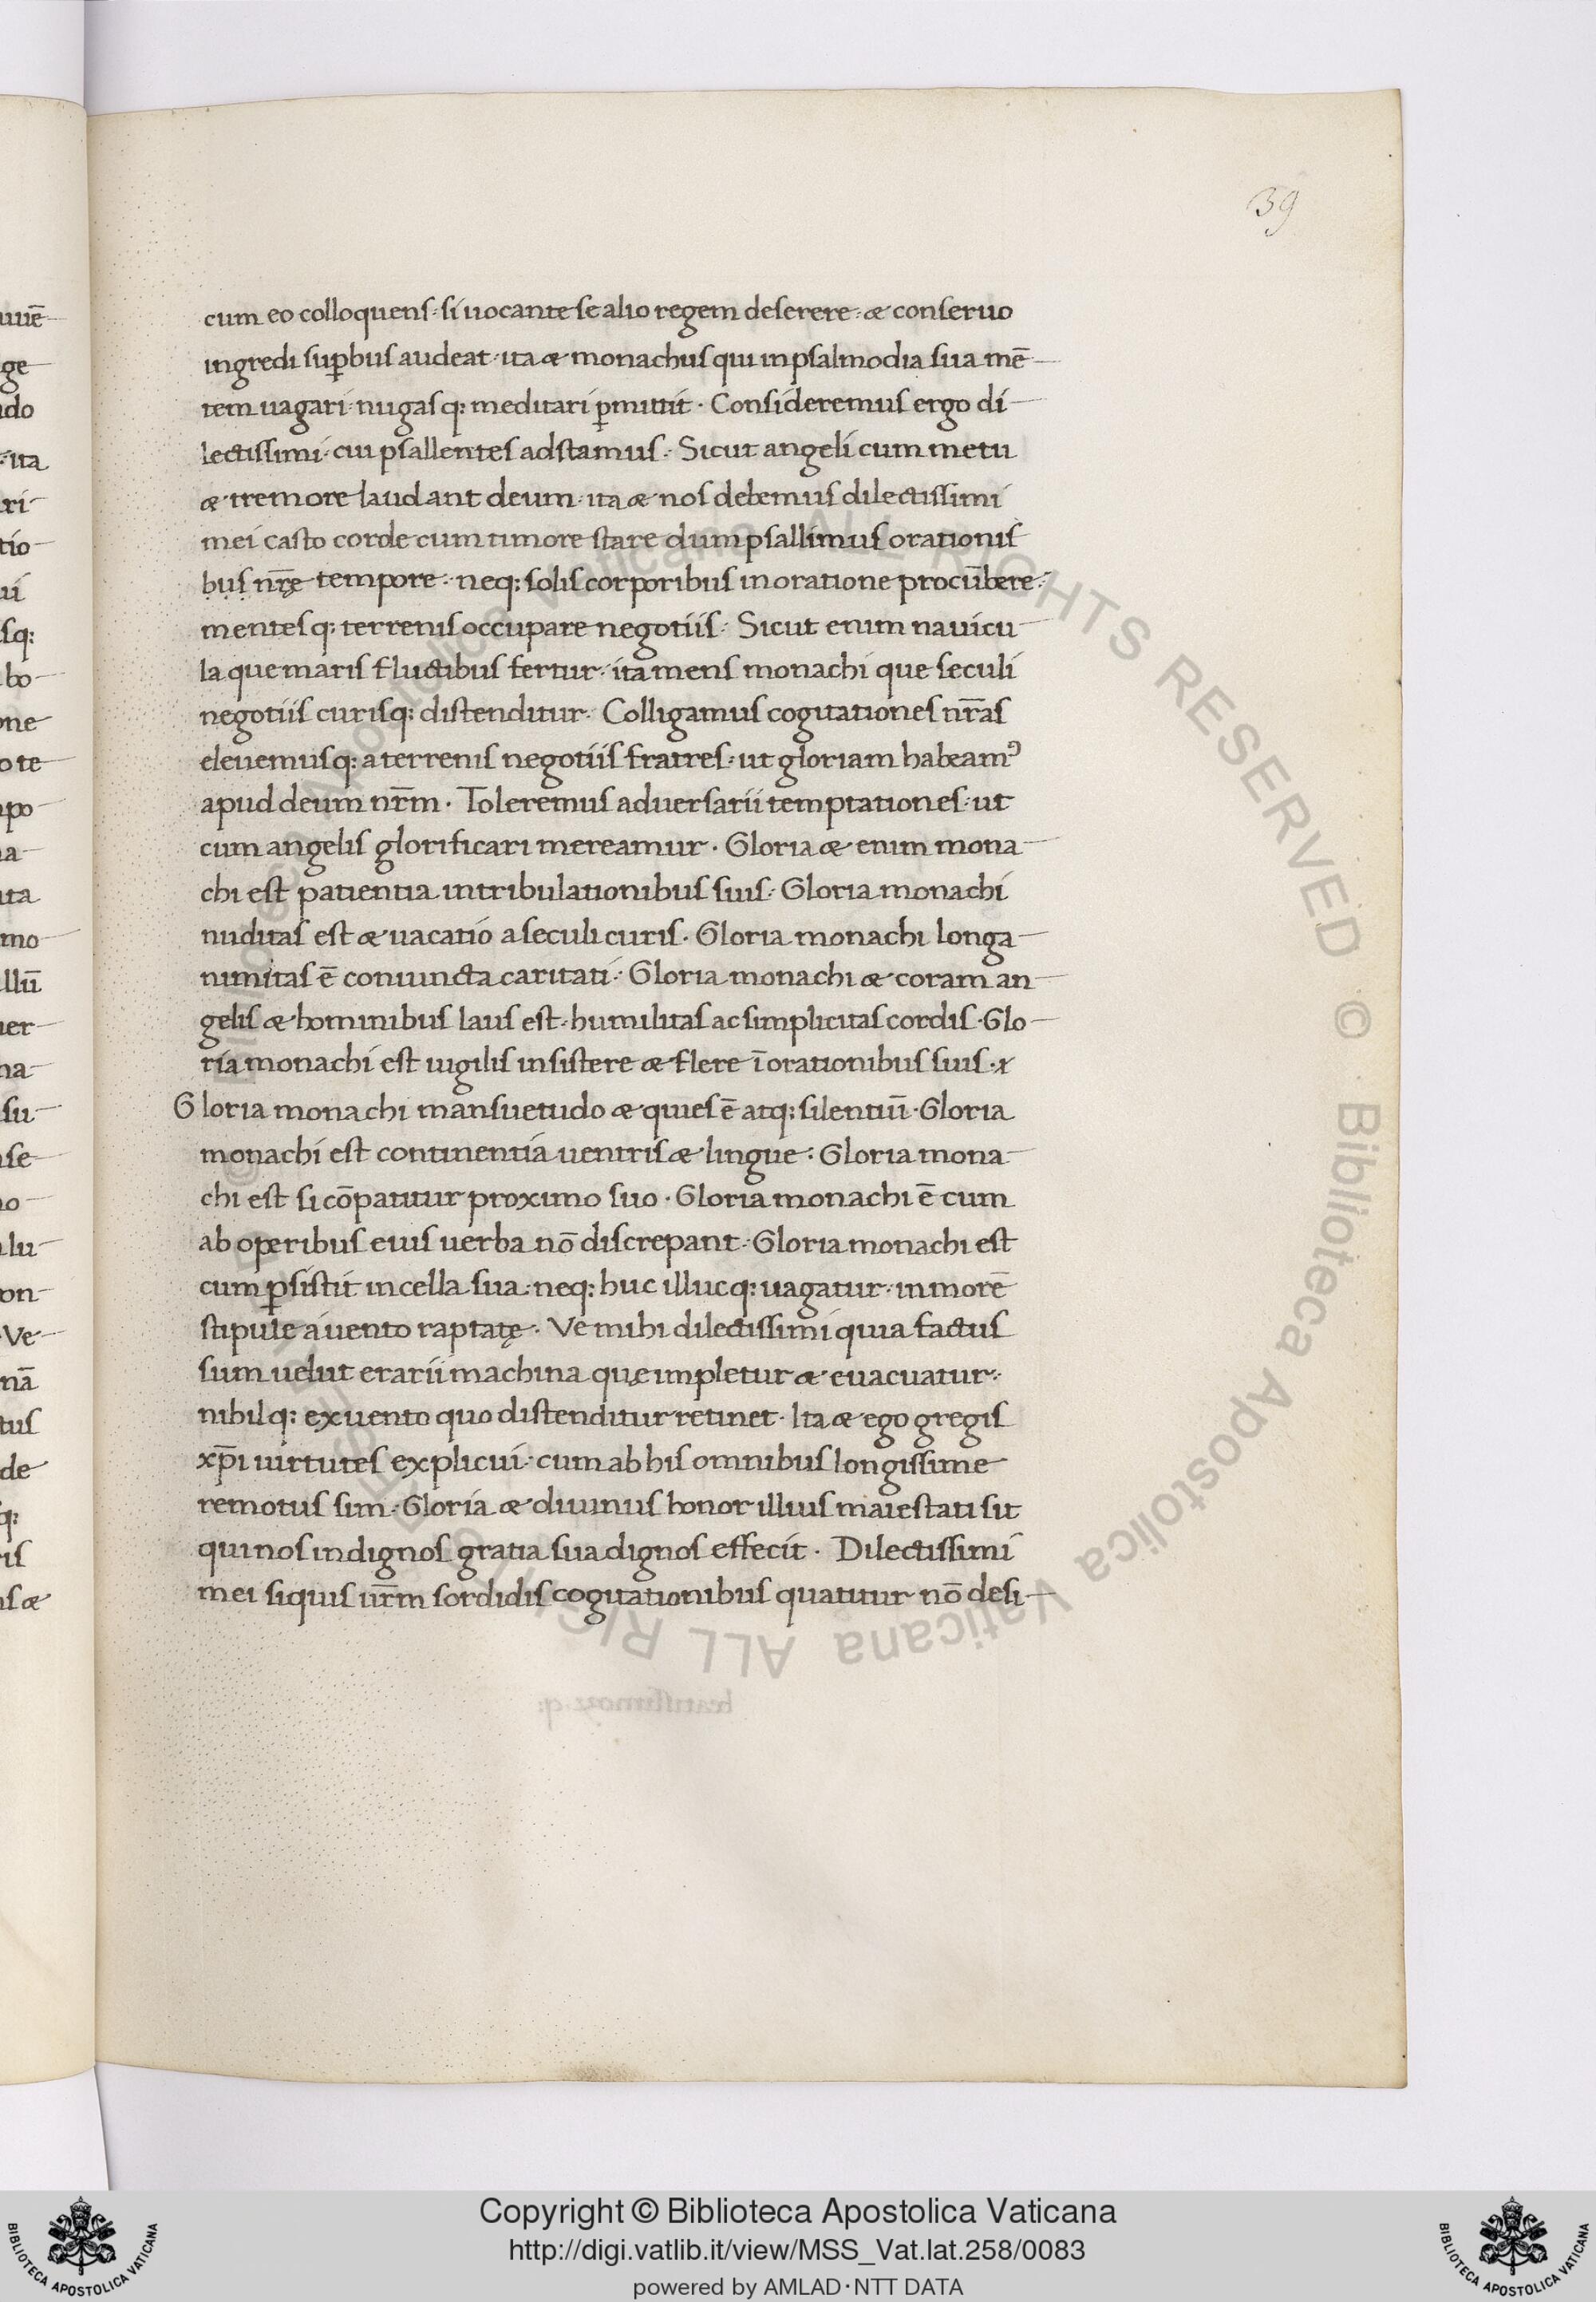 39
cum eo colloquens· si uocante se alio regem deserere· & conseruo
ingredi suꝑbus audeat· ita & monachus qui in psalmodia sua mē
tem uagari nugasq; meditari ꝑmittit· Consideremus ergo di
lectissimi· cui psallentes adstamus· Sicut angeli cum metu
& tremore laudant deum· ita & nos debemus dilectissimi
mei casto corde cum timore stare dum psallimus orationis
bus nr̄ę tempore· neq; solis corporibus in oratione procūbere·
mentesq; terrenis occupare negotiis· Sicut enim nauicu
la que maris fluctibus fertur· ita mens monachi que seculi
negotiis curisq; distenditur· Colligamus cogitationes nr̄as
eleuemusq; a terrenis negotiis fratres· ut gloriam habeamꝰ
apud deum nr̄m· Toleremus aduersarii temptationes· ut
cum angelis glorificari mereamur· Gloria & enim mona
chi est patientia in tribulationibus suis· Gloria monachi
nuditas est & uacatio a seculi curis· Gloria monachi longa
nimitas ē coniuncta caritati· Gloria monachi & coram an
gelis & hominibus laus est· humilitas ac simplicitas cordis· Glo
ria monachi est uigiliis insistere & flere ī orationibus suis·
Gloria monachi mansuetudo & quies ē atq; silentiū· Gloria
monachi est continentia uentris & lingue· Gloria mona
chi est si cōpatitur proximo suo· Gloria monachi ē cum
ab operibus eius uerba nō discrepant· Gloria monachi est
cum ꝑsistit in cella sua· neq; huc illucq; uagatur· in morē
stipule a uento raptatę· Ve mihi dilectissimi quia factus
sum uelut erarii machina quę impletur & euacuatur·
nihilq; ex uento quo distenditur retinet· Ita & ego gregis
xp̄i uirtutes explicui· cum ab his omnibus longissime
remotus sim· Gloria & diuinus honor illius maiestati sit
qui nos indignos gratia sua dignos effecit· Dilectissimi
mei siquis ur̄m sordidis cogitationibus quatitur nō desi
Copyright © Biblioteca Apostolica Vaticana
http://digi.vatlib.it/view/MSS_Vat.lat.258/0083
powered by AMLAD·NTT DATA